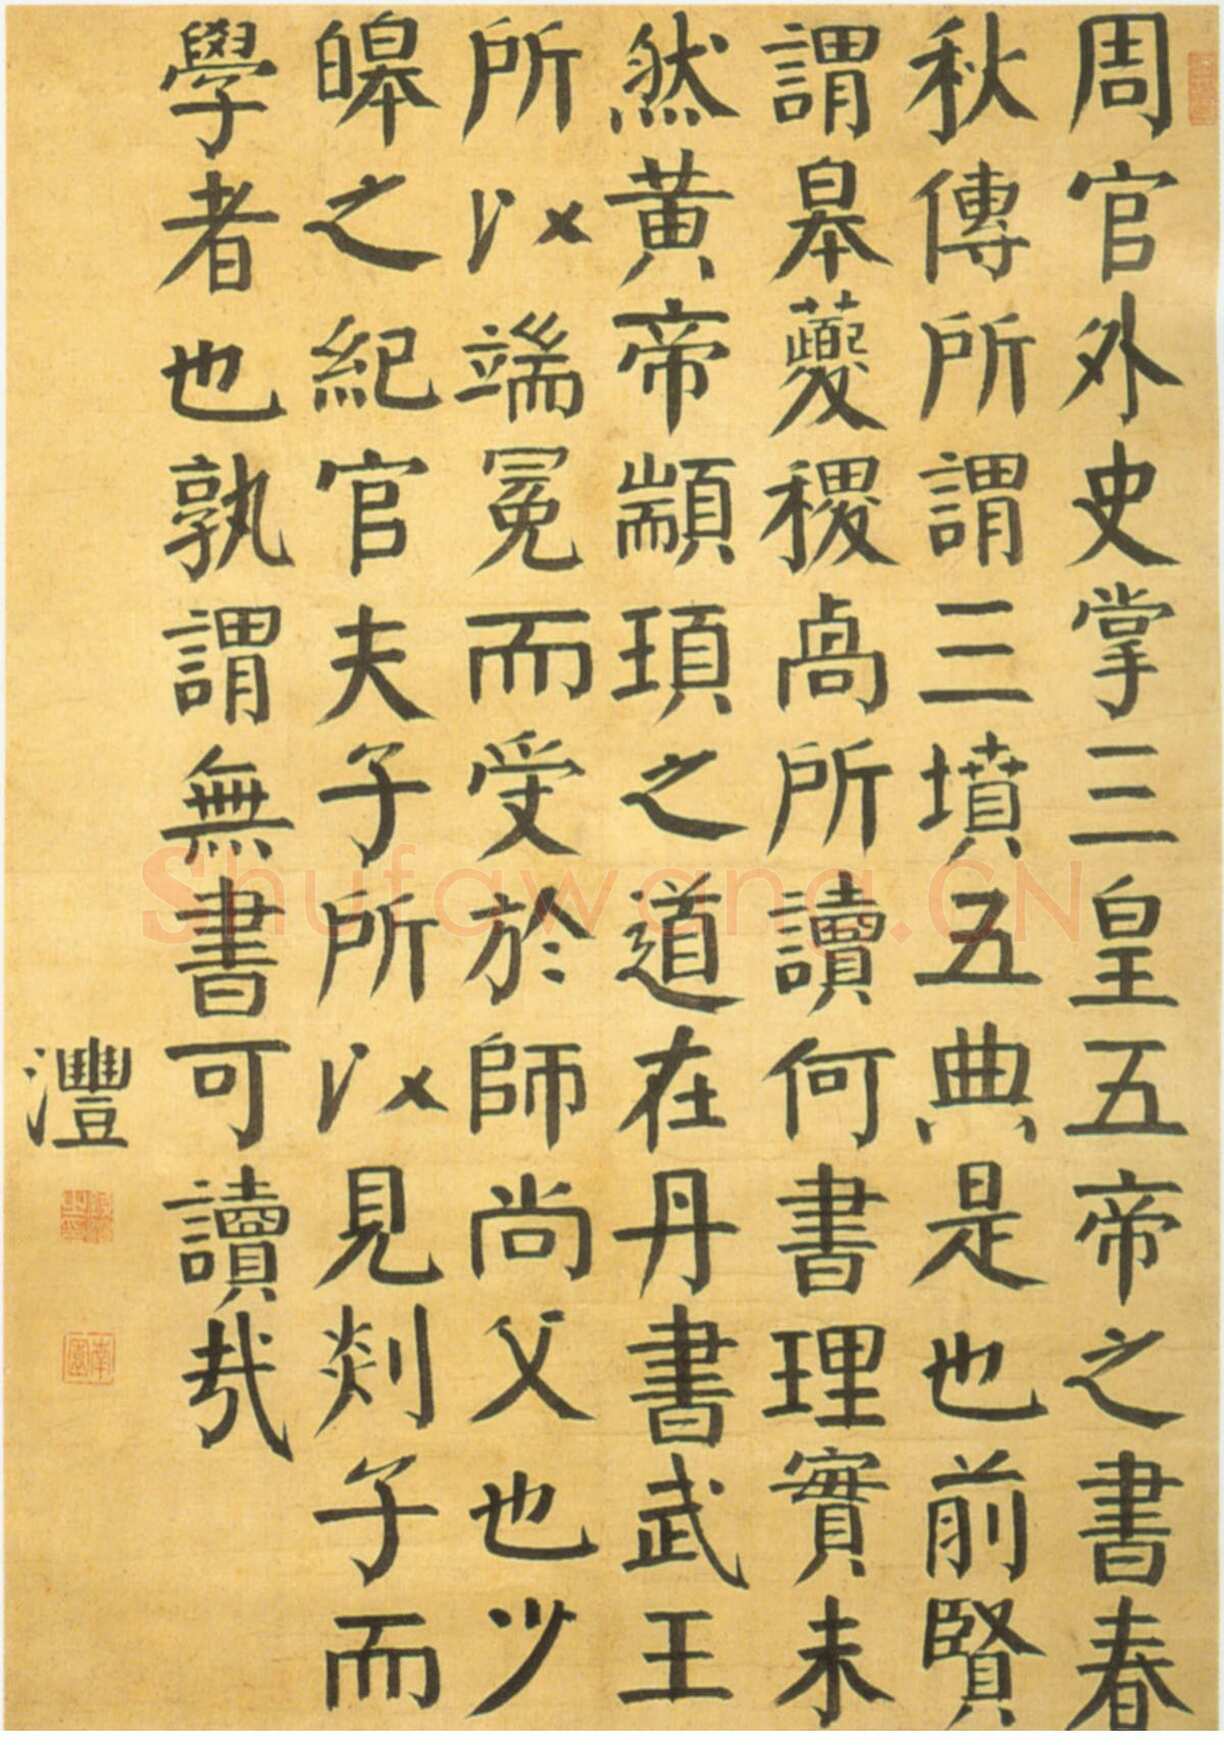 周官外史掌三皇五帝之書春
秋傳所謂三墳五典是也前賢
謂皋夔稷卨所讀何書理實未
然黃帝顓頊之道在丹書武王
所以端冕而受於師尚父也少
皞之紀官夫子所以見剡子而
學者也孰謂無書可讀哉
灃
Shufawang.CN